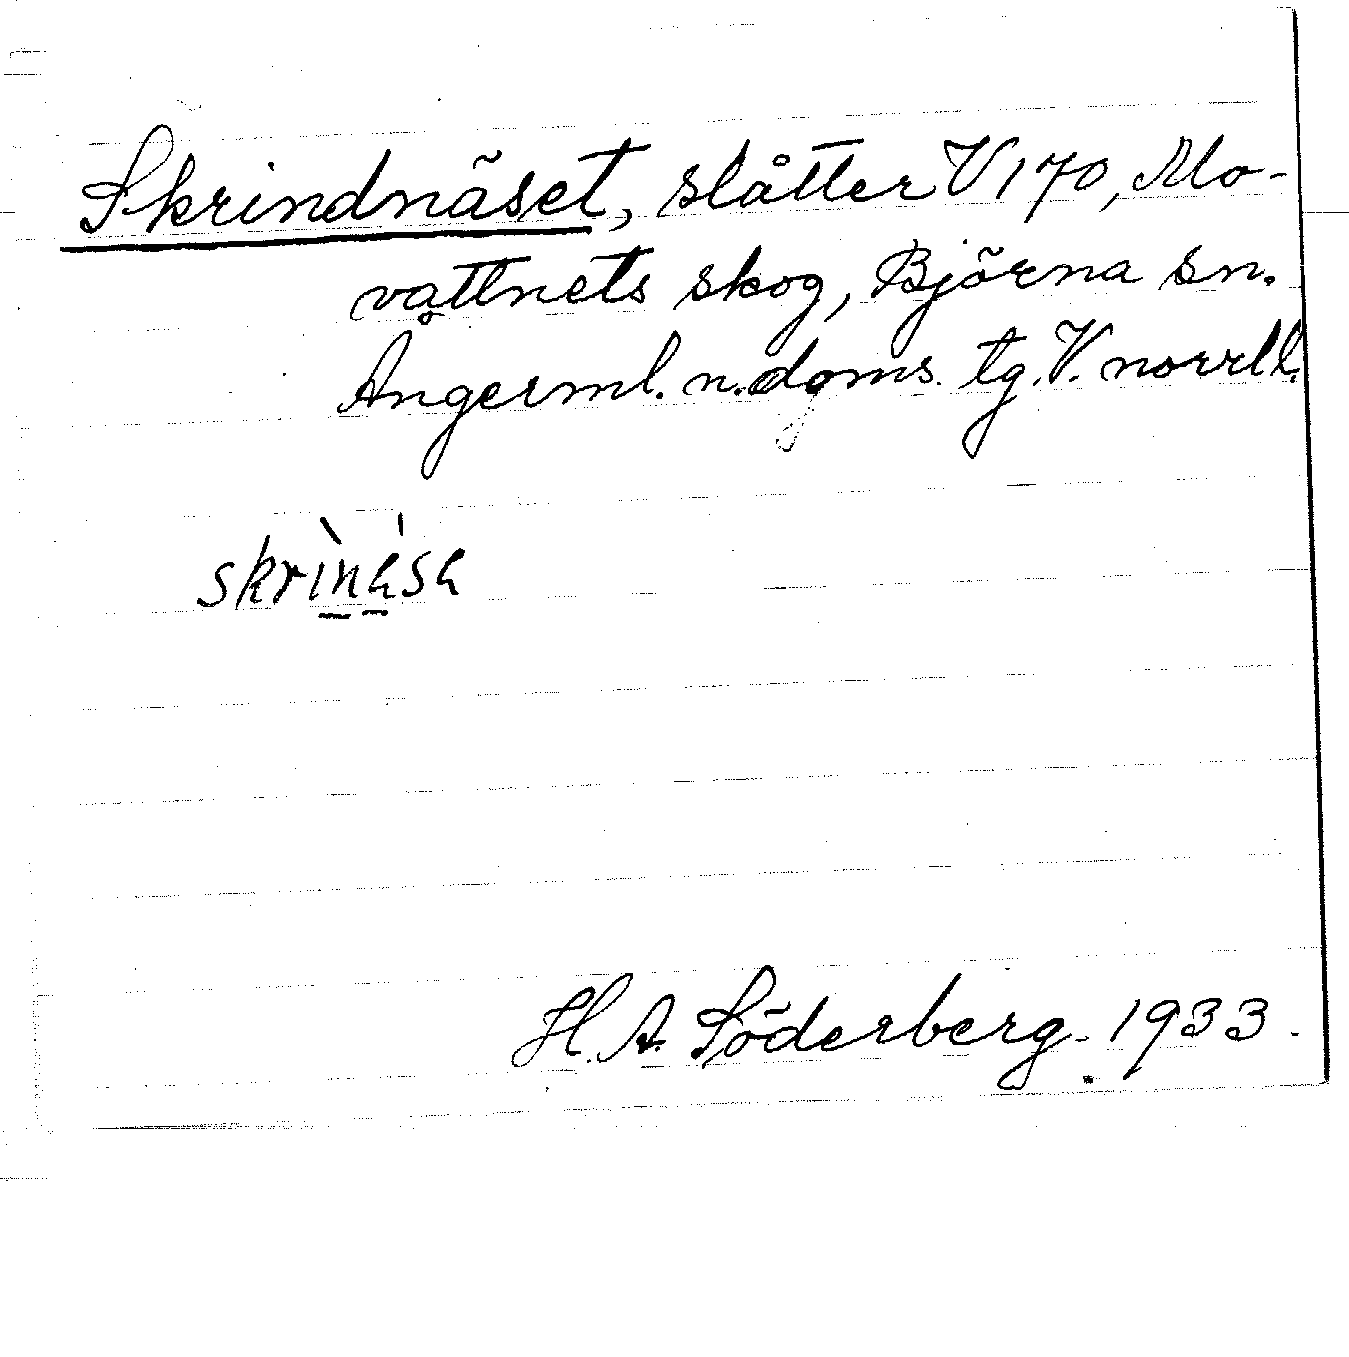 Skrindnäset, slåtter V 170, Mo-
vattnets skog, Björna sn.
Ångerml. n. doms. tg. V. norrll.
H. A. Söderberg. 1933.